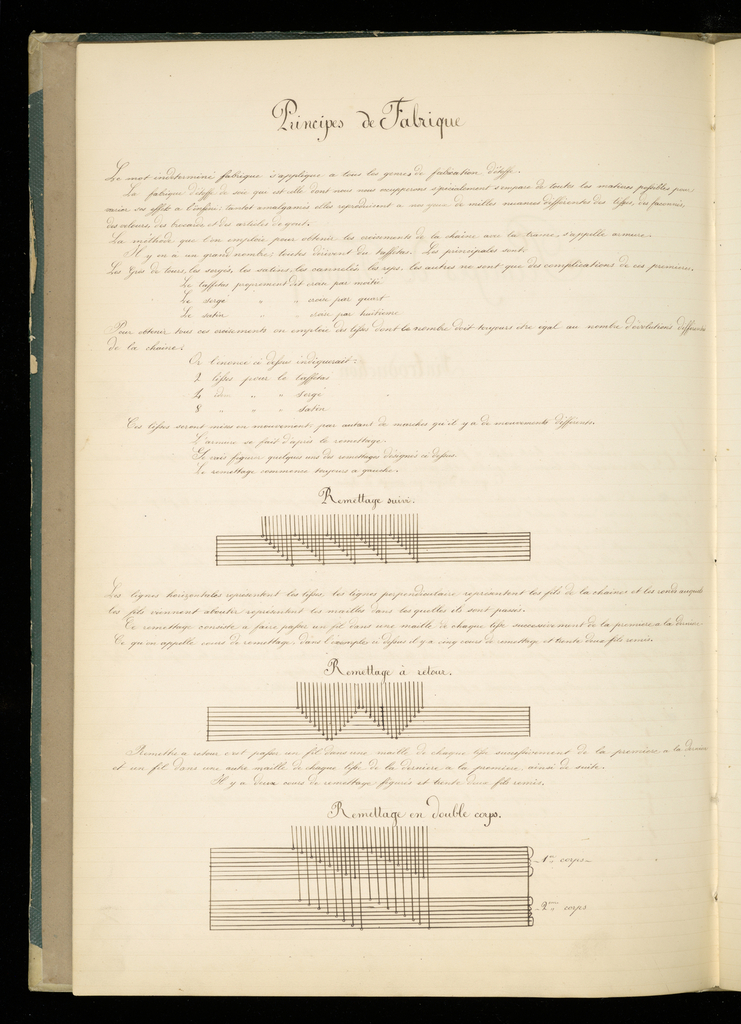 Principes de Fabrique
Le mot indeterminé fabrique s'applique a tous les genres de fabrication d'étoffe.
La fabrique d'étoffe de soie qui est celle dont nous nous occuperons spécialement s'empare de toutes les matieres possibles pour
varier ses effets a l'infini: tantot amalgamés elles reproduisent a nos yeux de milles nuances differentes des lisses, des façonnés,
des velours, des brocards et des articles de gout.
La méthode que l'on emploie pour obtenir les croisements de la chaine avec la trame s'appelle armure.
Il y en a un grand nombre; toutes dérivent du taffetas. Les principales sont
Les Gros de tours, les sergés, les satins, les cannelés, les reps. les autres ne sont que des complications de ces premieres.
Le taffetas proprement dit croise par moitié
Le sergé " " croise par quart
Le satin " " croise par huitieme
Pour obtenir tous ces croisements on emploie des lisses dont le nombre doit toujours etre egal au nombre d'évolutions differentes
de la chaine:
Or l'énoncé ci dessus indiquerait:
2 lisses pour le taffetas
4 " " sergé
8 " " " satin
Ces lisses seront mises en mouvement par autant de marches qu'il y a de mouvements differents.
L'armure se fait d'après le remettage.
Je vais figurer quelques uns des remettages désignés ci dessus.
Le remettage commence toujours a gauche.
Remettage suivi.
Les lignes horizontales représentent les lisses, les lignes perpendiculaires représentent les fils de la chaine et les ronds auxquels
les fils viennent aboutir représentent les mailles dans lesquelles ils sont passés.
Ce remettage consiste a faire passer un fil dans une maille de chaque lisse successivement de la premiere a la derniere.
Ce qu'on appelle cours de remettage, dans l'exemple ci dessus il y a cinq cours de remettage et trente deux fils remis.
Remettage à retour.
Remettre a retour c'est passer un fil dans une maille de chaque lisse successivement de la premiere a la derniere
et un fil dans une autre maille de chaque lisse de la derniere a la premiere ainsi de suite.
Il y a deux cours de remettage figurés et trente deux fils remis.
Remettage en double corps.
1er corps
2eme corps